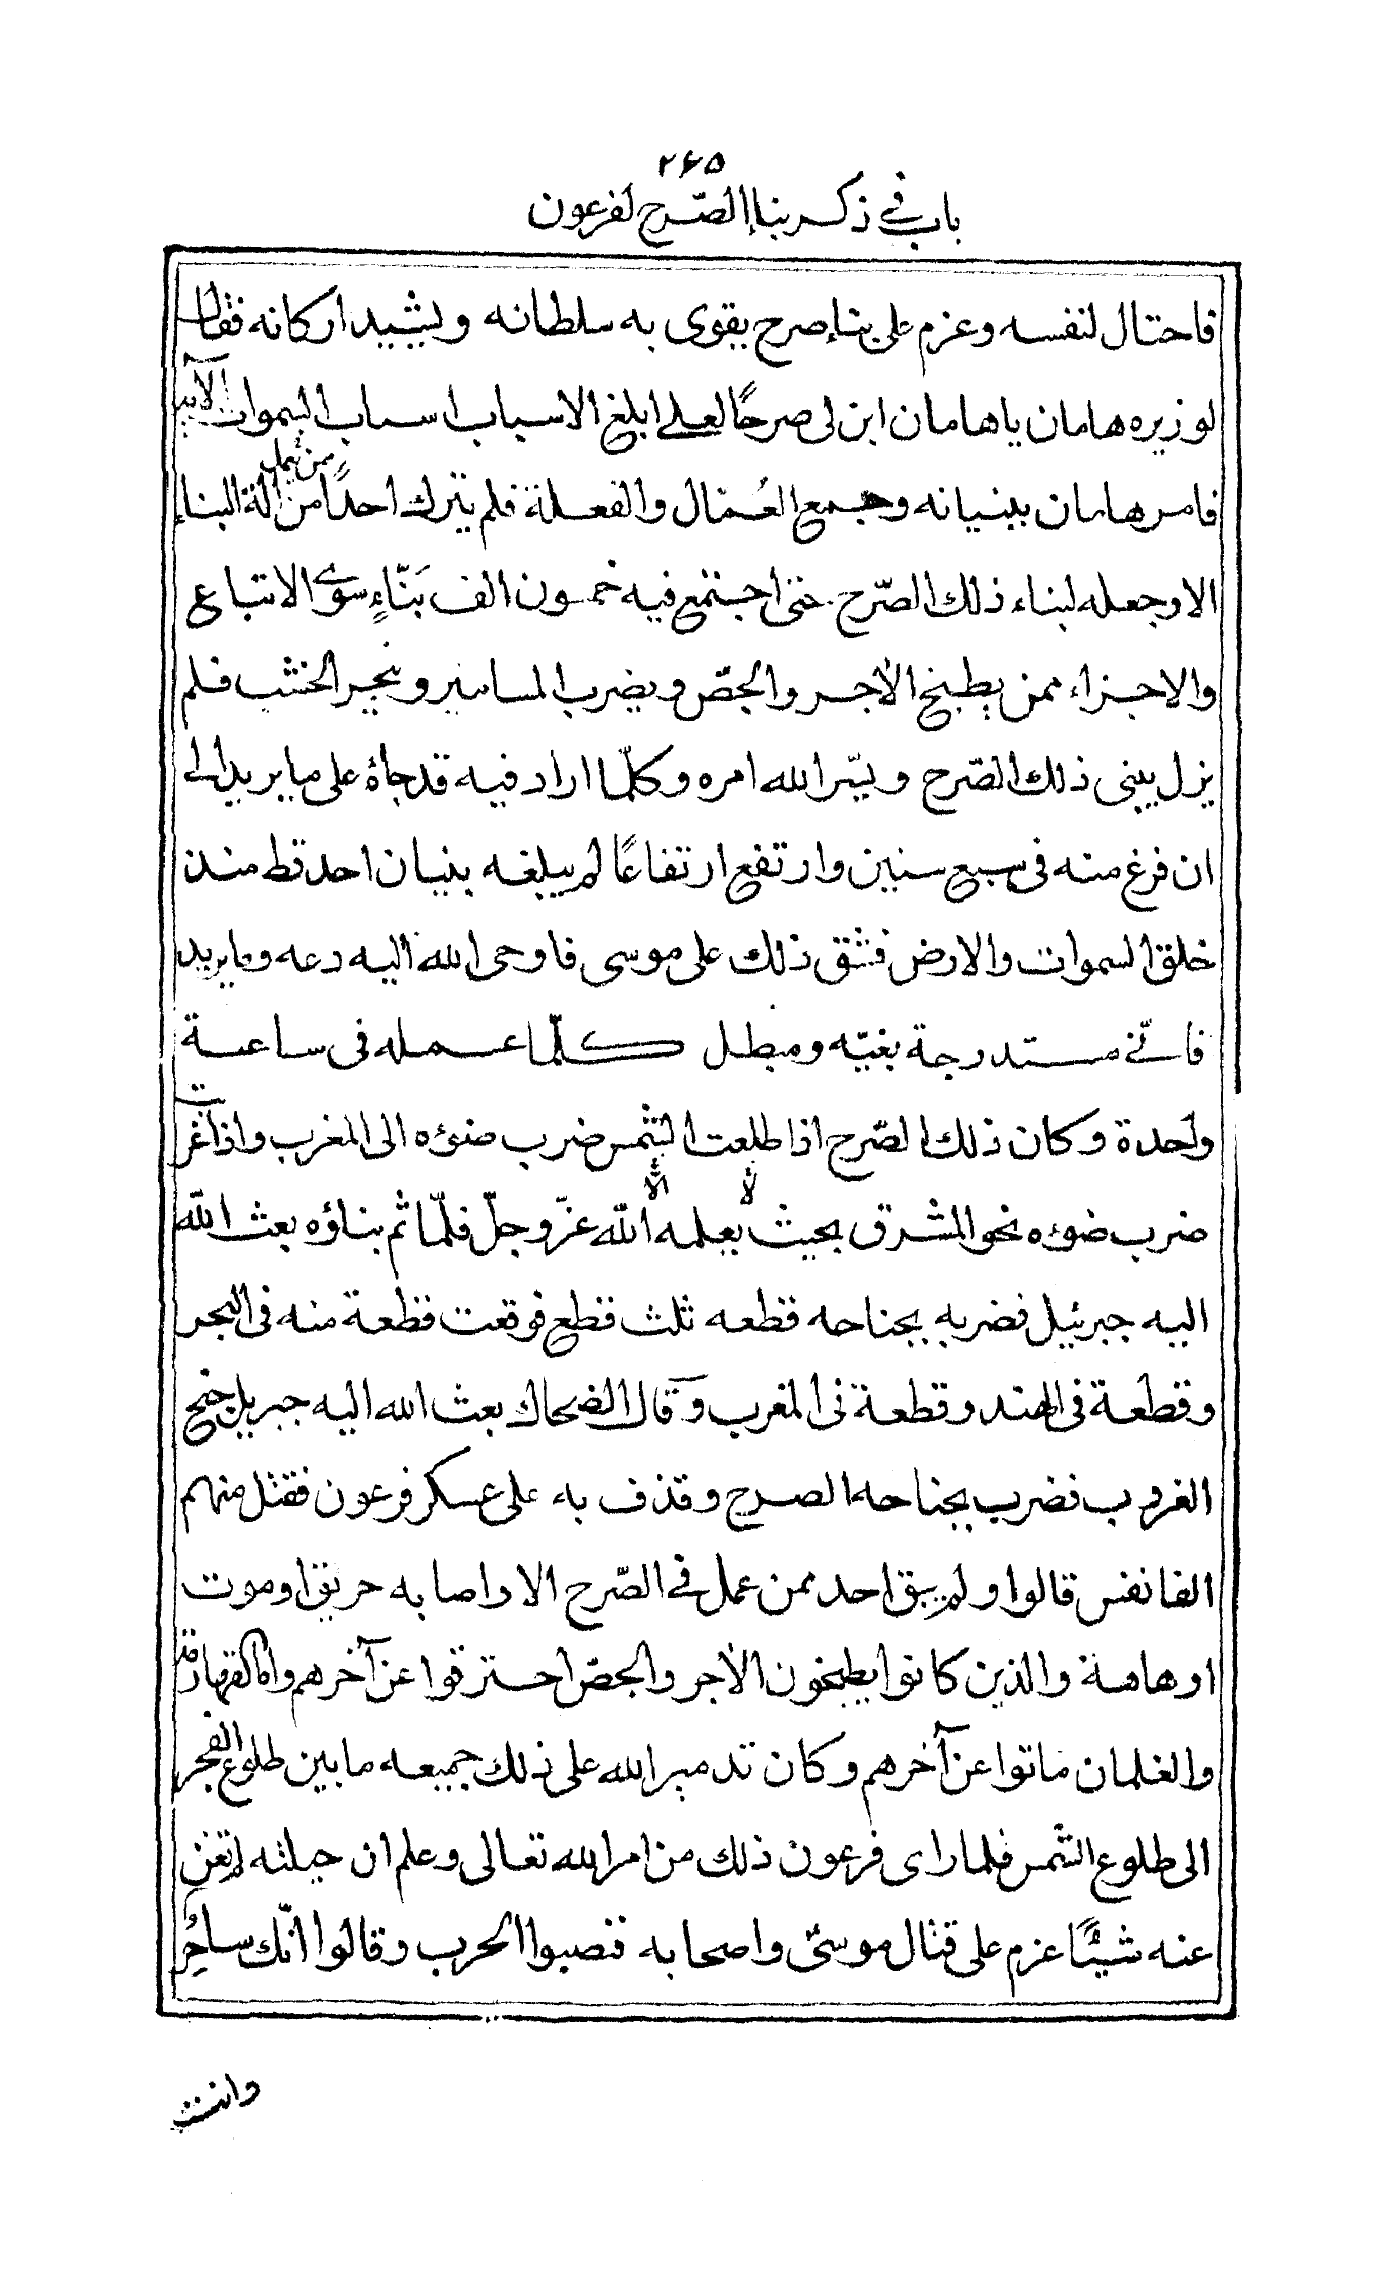 ٢۶۵
باب في ذكر بناء الصّرح لفرعون
فاحتال لنفسه وعزم على بناء صرح يقوى به سلطانه ويشيد اركانه فقال
لوزيره هامان يا هامان ابن لى صرحًا لعلى ابلغ الاسباب اسباب السموات الآية
فامر هامان ببنيانه وجمع العُمّال والفعلة فلم يترك احدًا من يعمل من آلة البناء
الا وجعله لبناء ذلك الصّرح حتى اجتمع فيه خمسون الف بَنّاءٍ سوى الاتباع
والاجزاء ممن يطبخ الآجر والجصّ ويضرب المسامير وينجر الخشب فلم
يزل يبنى ذلك الصّرح ويسّر الله امره وكلّما اراد فيه قد جاؤه على ما يريد الى
ان فرغ منه فى سبع سنين وارتفع ارتفاعًا لم يبلغه بنيان احد قط منذ
خلق السموات والارض فشق ذلك على موسى فاوحى الله اليه دعه وما يريد
فانّي مستدرجة بغيّه ومبطل كلّما عمله فى ساعة
واحدة وكان ذلك الصّرح اذا طلعت الشمس ضرب ضوءه الى المغرب واذا غربت
ضرب ضوءه نحو المشرق بحيث لا يعلمه الا الله عزّوجلّ فلمّا تم بناؤه بعث الله
اليه جبرئيل فضربه بجناحه قطعه ثلث قطع فوقعت قطعة منه فى البحر
وقطعة فى الهند وقطعة فى المغرب وقال الضحاك بعث الله اليه جبريل جنح
الغروب فضرب بجناحه الصرح وقذف به على عسكر فرعون فقتل منهم
الفا نفس قالوا ولم يبق احد ممن عمل في الصّرح الا واصابه حريق او موت
او هاهة والذين كانوا يطبخون الآجر والجصّ احترقوا عن آخرهم واما القهارمة
والغلمان ماتوا عن آخرهم وكان تدمير الله على ذلك جميعه ما بين طلوع الفجر
الى طلوع الشّمس فلما راى فرعون ذلك من امر الله تعالى وعلم ان حيلته لم تغن
عنه شيئًا عزم على قتال موسىٰ واصحابه فنصبوا الحرب وقالوا انّك ساحرٌ
وانت